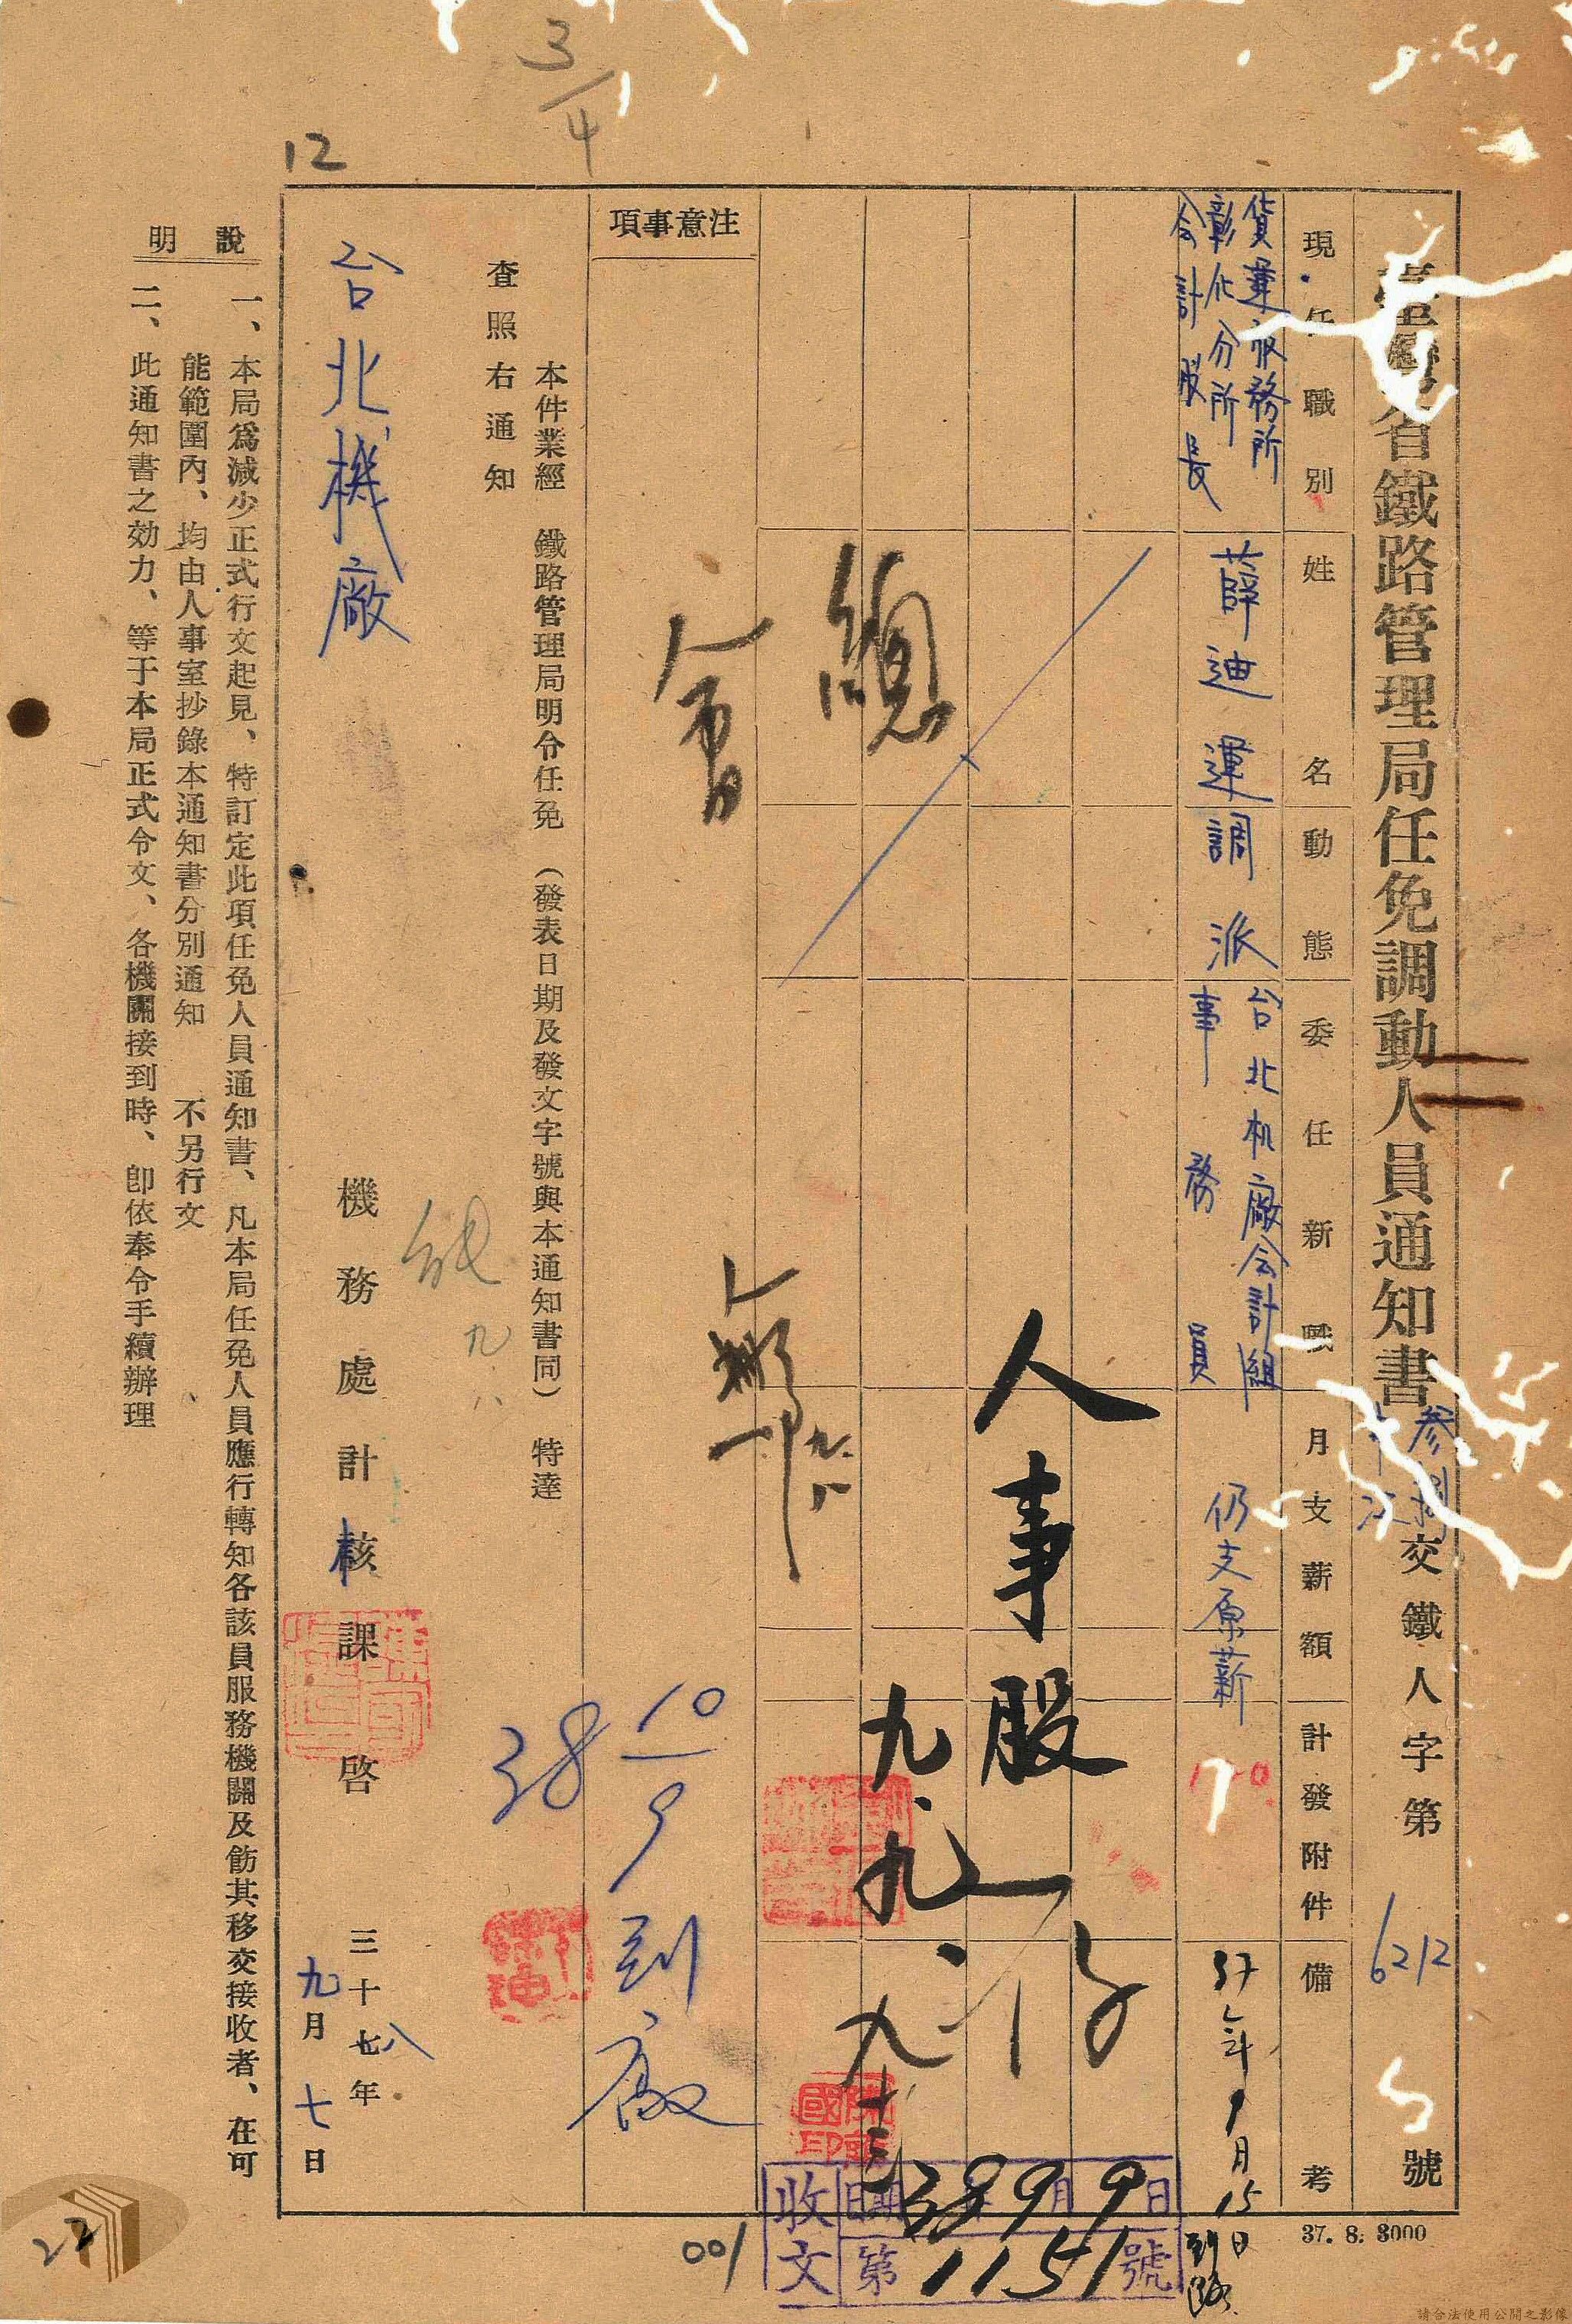 臺灣省鐵路管理局任免調動人員通知書
参捌
交鐵人字第6212號
現任職別
姓名
動態
委任新職
月支薪額
計發附件
備考
貨運服務所
彰化分所
会計股長
薛迪運
調派
台北机廠会計組
事務員
仍支原薪
37年9月15日
到路
人事股
九.九
總
注意事項
10/9到廠
38
本件業經 鐵路管理局明令任免 (發表日期及發文字號與本通知書同) 特達
查照右通知
台北機廠
機務處計核課啓
三十七八年
九月七日
說明
一、本局爲減少正式行文起見、特訂定此項任免人員通知書、凡本局任免人員應行轉知各該員服務機關及飭其移交接收者、在可
能範圍內、均由人事室抄錄本通知書分別通知 不另行文、
二、此通知書之効力、等于本局正式令文、各機關接到時、卽依奉令手續辦理
收文
日期38年9月9日
第1151號
001
37. 8. 3000
3/4
12
22
請合法使用公開之影像